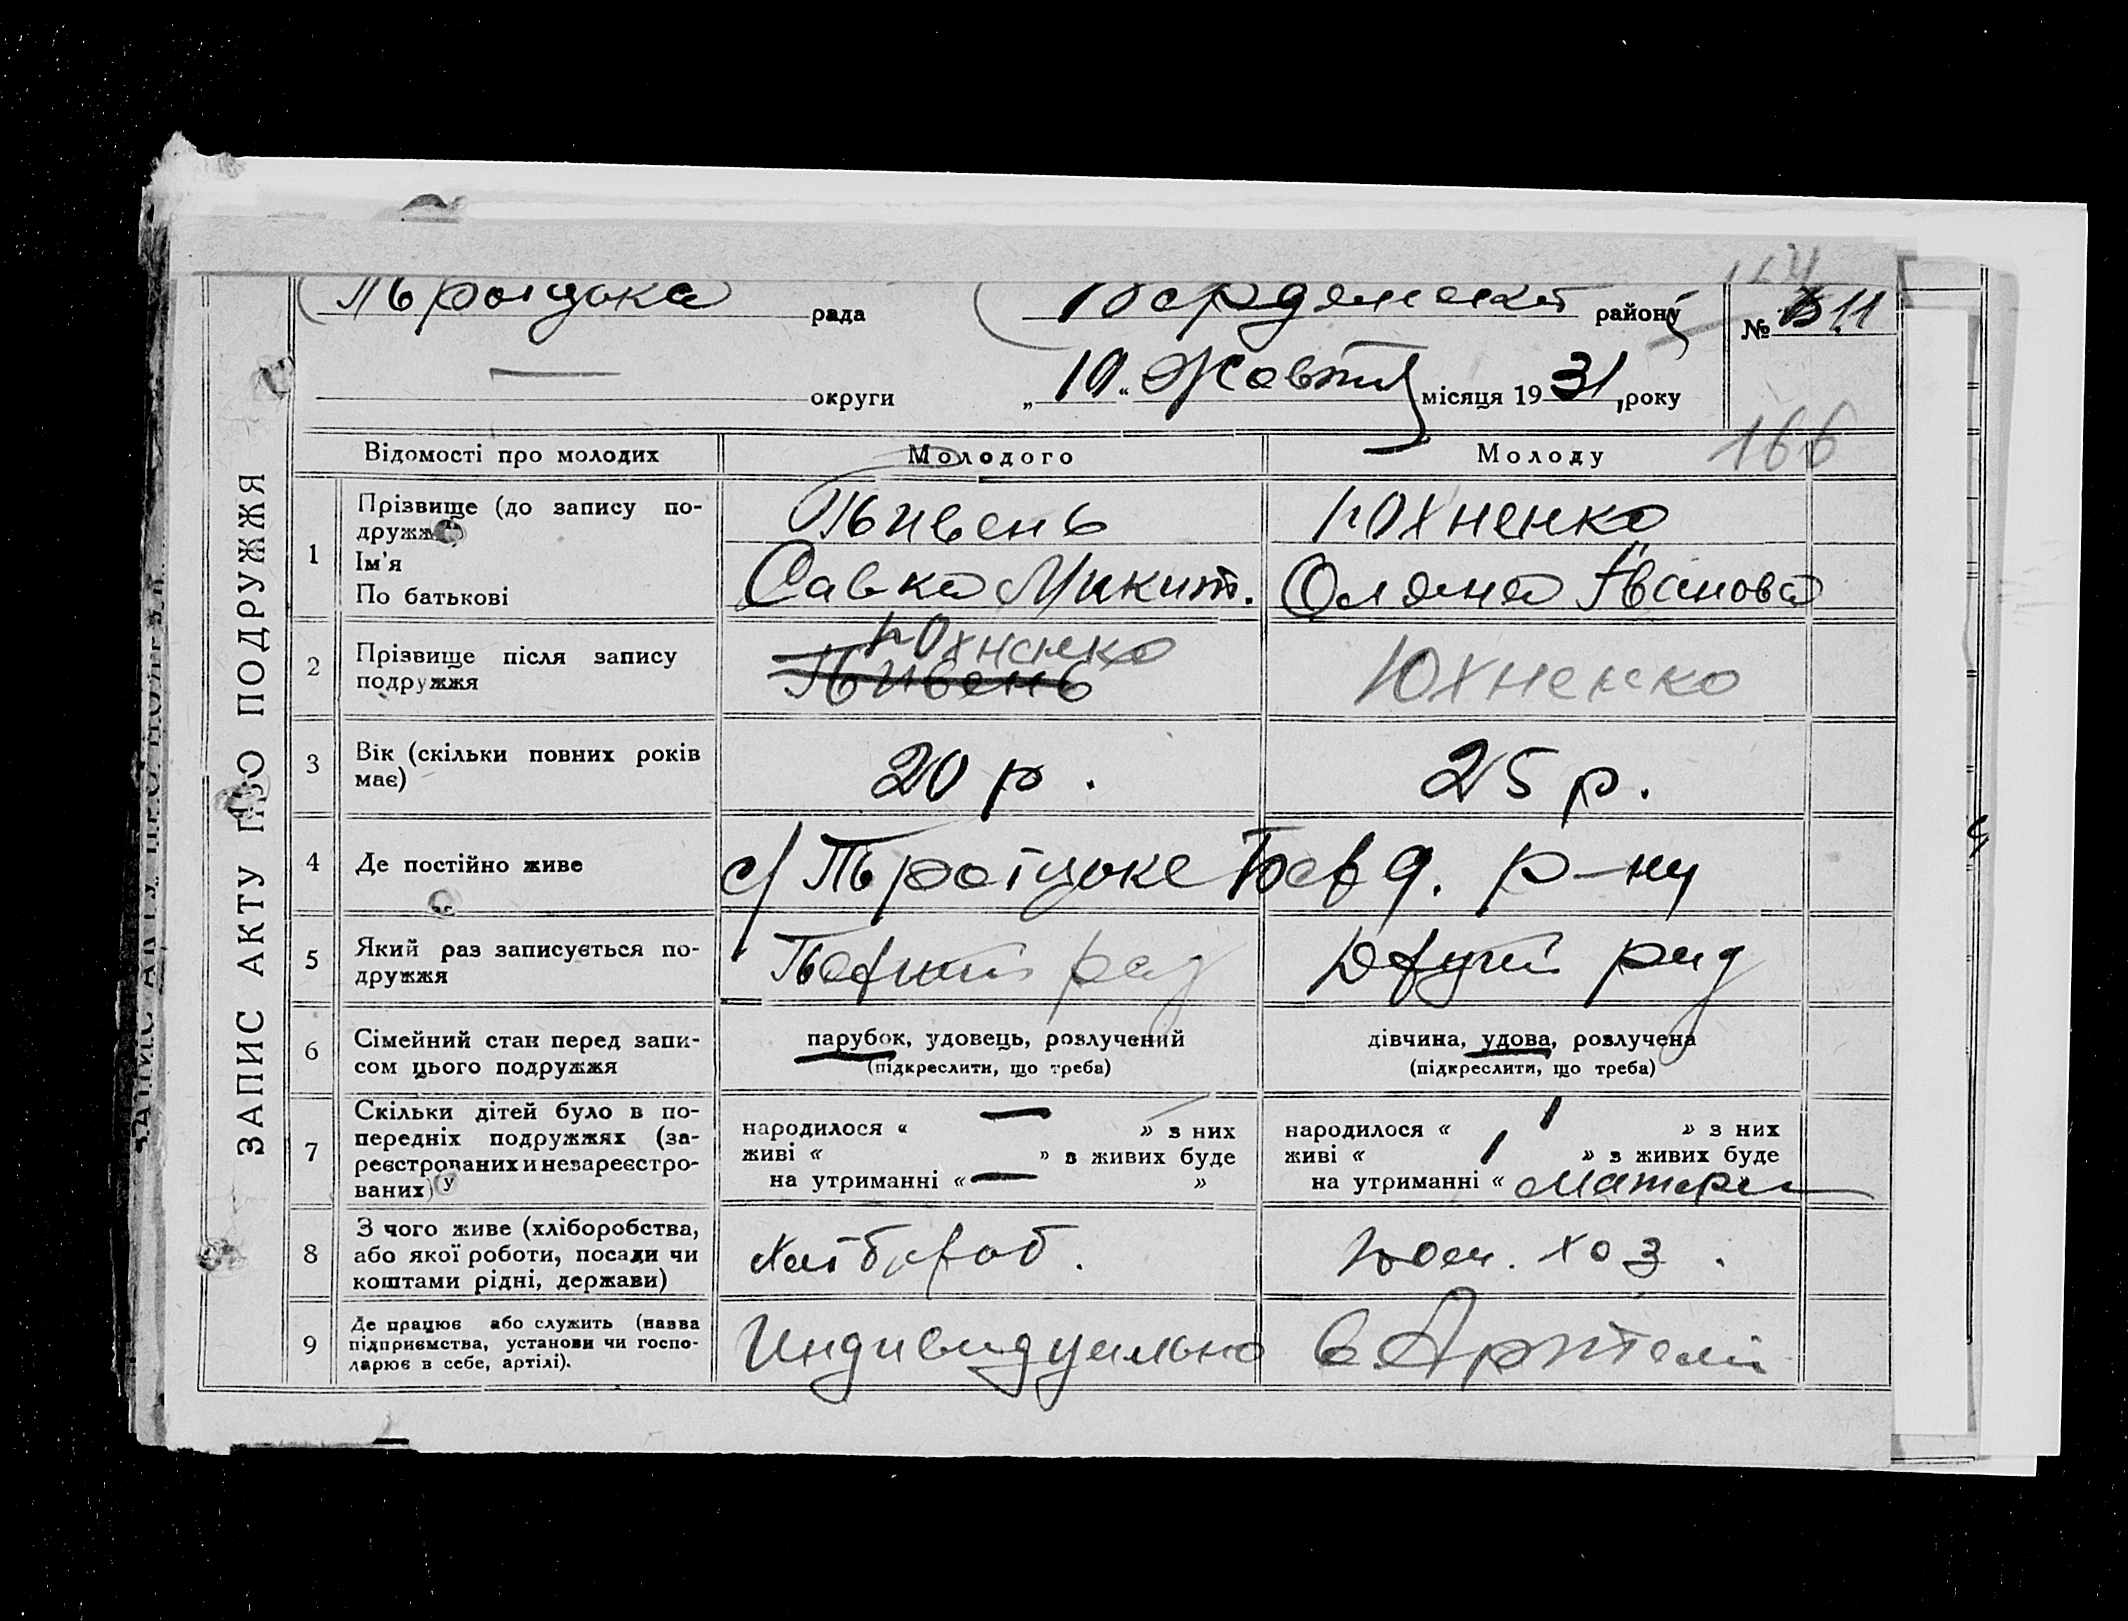 Троіцька рада Бердянськ району № 11
округи „10“ Жовтня місяця 1931 року
166
ЗАПИС АКТУ ПРО ПОДРУЖЖЯ
Відомості про молодих Молодого Молоду
1 Прізвище (до запису по-
дружжя)
Ім'я
По батькові
Пивень Юхненко
Савка Микит. Оляна Іванова
2 Прізвище після запису
подружжя
Юхненко
Пивень Юхненко
3 Вік (скільки повних років
має)
20 р. 25 р.
4 Де постійно живе с/ Троіцьке Берд. р-ну
5 Який раз записується по-
дружжя
Перший раз Другий раз
6 Сімейний стан перед запи-
сом цього подружжя
парубок, удовець, розлучений дівчина, удова, розлучена
(підкреслити, що треба) (підкреслити, що треба)
7 Скільки дітей було в по-
передніх подружжях (за-
реєстрованих и незареєстро-
ваних)
народилося « — » з них народилося « 1 » з них
живі « » з живих буде живі « 1 » з живих буде
на утриманні « — » на утриманні « Матери
8 З чого живе (хліборобства,
або якої роботи, посади чи
коштами рідні, держави)
Хлібороб. дом. хоз.
9 Де працює або служить (назва
підприємства, установи чи госпо-
дарює в себе, артілі).
Индивидуально в Артелі